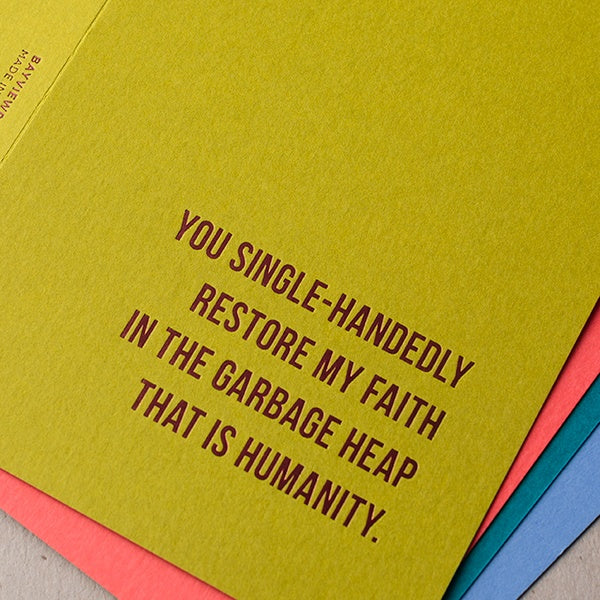 YOU SINGLE-HANDEDLY
RESTORE MY FAITH
IN THE GARBAGE HEAP
THAT IS HUMANITY.
MADE IN